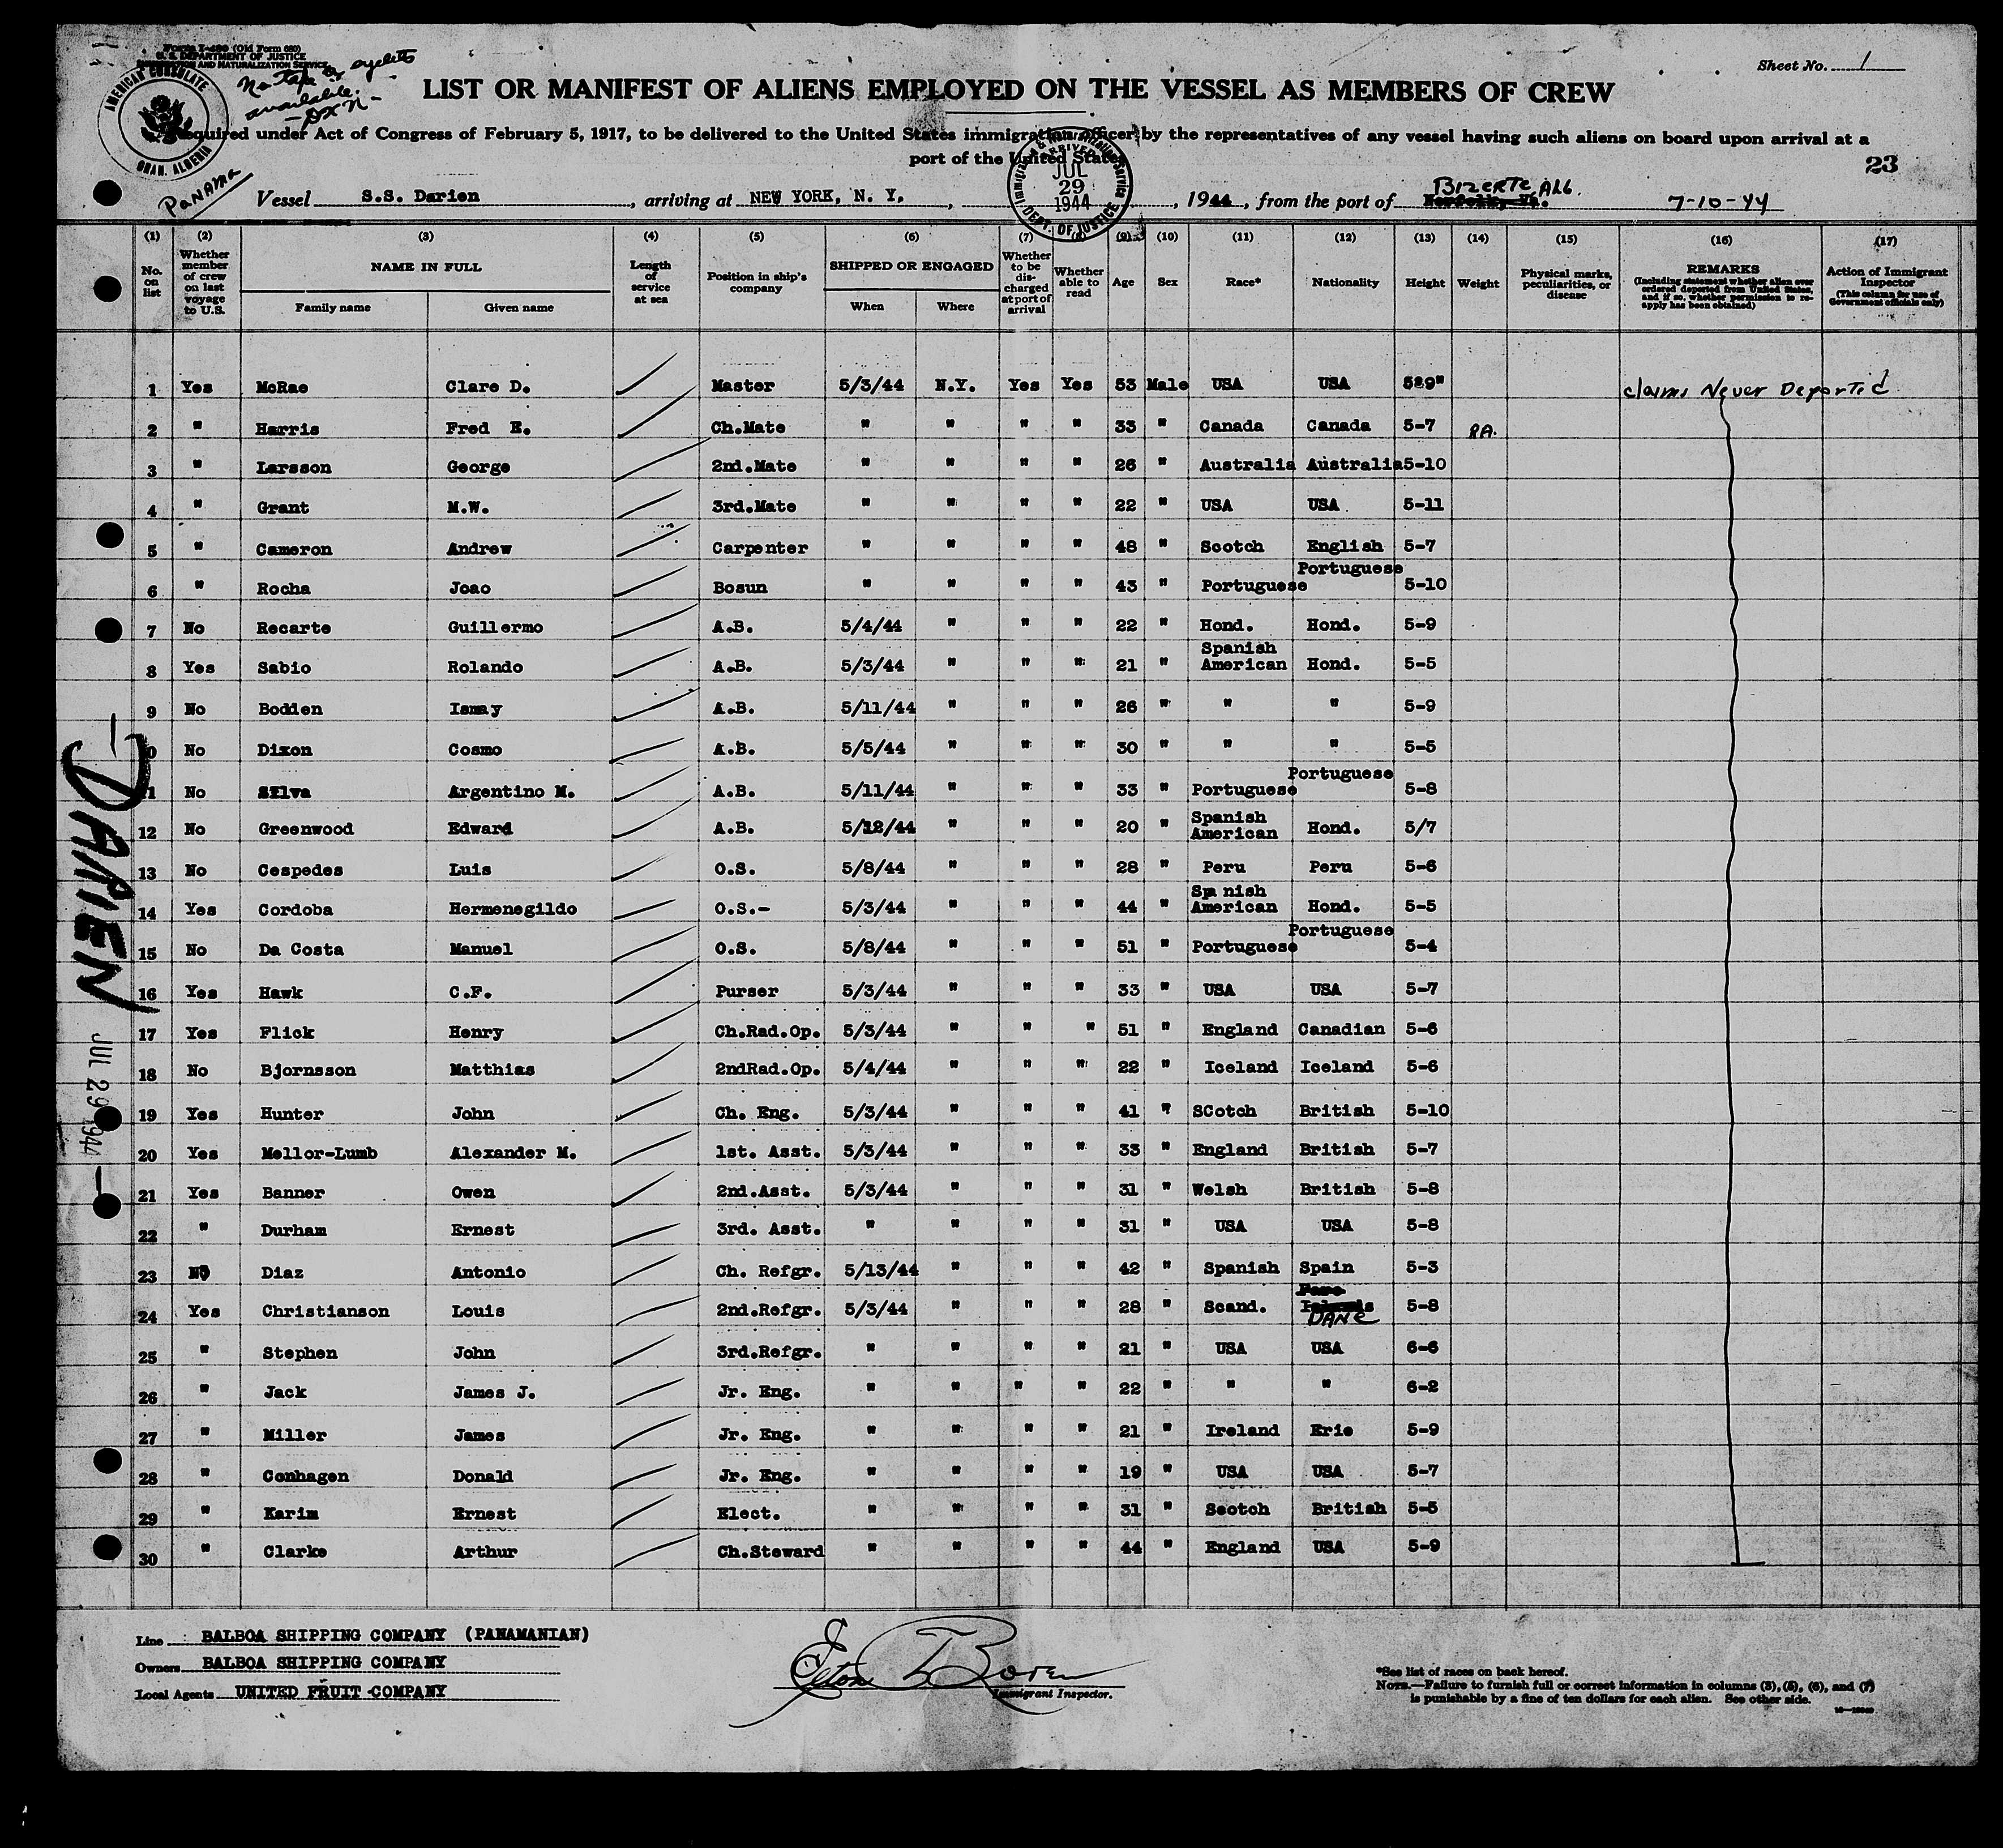 Form I-480 (Old Form 680)
U. S. DEPARTMENT OF JUSTICE
IMMIGRATION AND NATURALIZATION SERVICE
AMERICAN CONSULATE
ORAN, ALGERIA
No tap or eyelets
available.
Panama
Sheet No. 1
LIST OR MANIFEST OF ALIENS EMPLOYED ON THE VESSEL AS MEMBERS OF CREW
Required under Act of Congress of February 5, 1917, to be delivered to the United States immigration officer by the representatives of any vessel having such aliens on board upon arrival at a
port of the United States
23
Immigration & Naturalization Service
ARRIVED
JUL
29
1944
DEPT. OF JUSTICE
Vessel S.S. Darien, arriving at NEW YORK, N. Y., 1944, from the port of Norfolk, Va. Bizerte Alg. 7-10-44
(1) (2) (3) (4) (5) (6) (7) (8) (9) (10) (11) (12) (13) (14) (15) (16) (17)
No. on list
Whether member of crew on last voyage to U.S.
NAME IN FULL
Family name
Given name
Length of service at sea
Position in ship's company
SHIPPED OR ENGAGED
When
Where
Whether to be discharged at port of arrival
Whether able to read
Age
Sex
Race*
Nationality
Height
Weight
Physical marks, peculiarities, or disease
REMARKS
(Including statement whether alien ever ordered deported from United States, and if so, whether permission to reapply has been obtained)
Action of Immigrant Inspector
(This column for use of Government officials only)
1 Yes McRae Clare D. Master 5/3/44 N.Y. Yes Yes 53 Male USA USA 5-9" claims Never Deported
2 " Harris Fred E. Ch.Mate " " " " 33 " Canada Canada 5-7 RA.
3 " Larsson George 2nd.Mate " " " " 26 " Australia Australia 5-10
4 " Grant M.W. 3rd.Mate " " " " 22 " USA USA 5-11
5 " Cameron Andrew Carpenter " " " " 48 " Scotch English 5-7
6 " Rocha Joao Bosun " " " " 43 " Portuguese Portuguese 5-10
7 No Recarte Guillermo A.B. 5/4/44 " " " 22 " Hond. Hond. 5-9
8 Yes Sabio Rolando A.B. 5/3/44 " " " 21 " Spanish American Hond. 5-5
9 No Bodden Ismay A.B. 5/11/44 " " " 26 " " " 5-9
10 No Dixon Cosmo A.B. 5/5/44 " " " 30 " " " 5-5
11 No Silva Argentino M. A.B. 5/11/44 " " " 33 " Portuguese Portuguese 5-8
12 No Greenwood Edward A.B. 5/12/44 " " " 20 " Spanish American Hond. 5/7
13 No Cespedes Luis O.S. 5/8/44 " " " 28 " Peru Peru 5-6
14 Yes Cordoba Hermenegildo O.S.- 5/3/44 " " " 44 " Spa nish American Hond. 5-5
15 No Da Costa Manuel O.S. 5/8/44 " " " 51 " Portuguese Portuguese 5-4
16 Yes Hawk C.F. Purser 5/3/44 " " " 33 " USA USA 5-7
17 Yes Flick Henry Ch.Rad.Op. 5/3/44 " " " 51 " England Canadian 5-6
18 No Bjornsson Matthias 2ndRad.Op. 5/4/44 " " " 22 " Iceland Iceland 5-6
19 Yes Hunter John Ch. Eng. 5/3/44 " " " 41 " SCotch British 5-10
20 Yes Mellor-Lumb Alexander M. 1st. Asst. 5/3/44 " " " 33 " England British 5-7
21 Yes Banner Owen 2nd.Asst. 5/3/44 " " " 31 " Welsh British 5-8
22 " Durham Ernest 3rd. Asst. " " " " 31 " USA USA 5-8
23 No Diaz Antonio Ch. Refgr. 5/13/44 " " " 42 " Spanish Spain 5-3
24 Yes Christianson Louis 2nd.Refgr. 5/3/44 " " " 28 " Scand. Faro Islands DANE 5-8
25 " Stephen John 3rd.Refgr. " " " " 21 " USA USA 6-6
26 " Jack James J. Jr. Eng. " " " " 22 " " " 6-2
27 " Miller James Jr. Eng. " " " " 21 " Ireland Erie 5-9
28 " Conhagen Donald Jr. Eng. " " " " 19 " USA USA 5-7
29 " Karim Ernest Elect. " " " " 31 " Scotch British 5-5
30 " Clarke Arthur Ch.Steward " " " " 44 " England USA 5-9
DARIEN
JUL 29 1944
Line BALBOA SHIPPING COMPANY (PANAMANIAN)
Owners BALBOA SHIPPING COMPANY
Local Agents UNITED FRUIT COMPANY
Immigrant Inspector.
*See list of races on back hereof.
NOTE.—Failure to furnish full or correct information in columns (3), (5), (6), and (7)
is punishable by a fine of ten dollars for each alien. See other side.